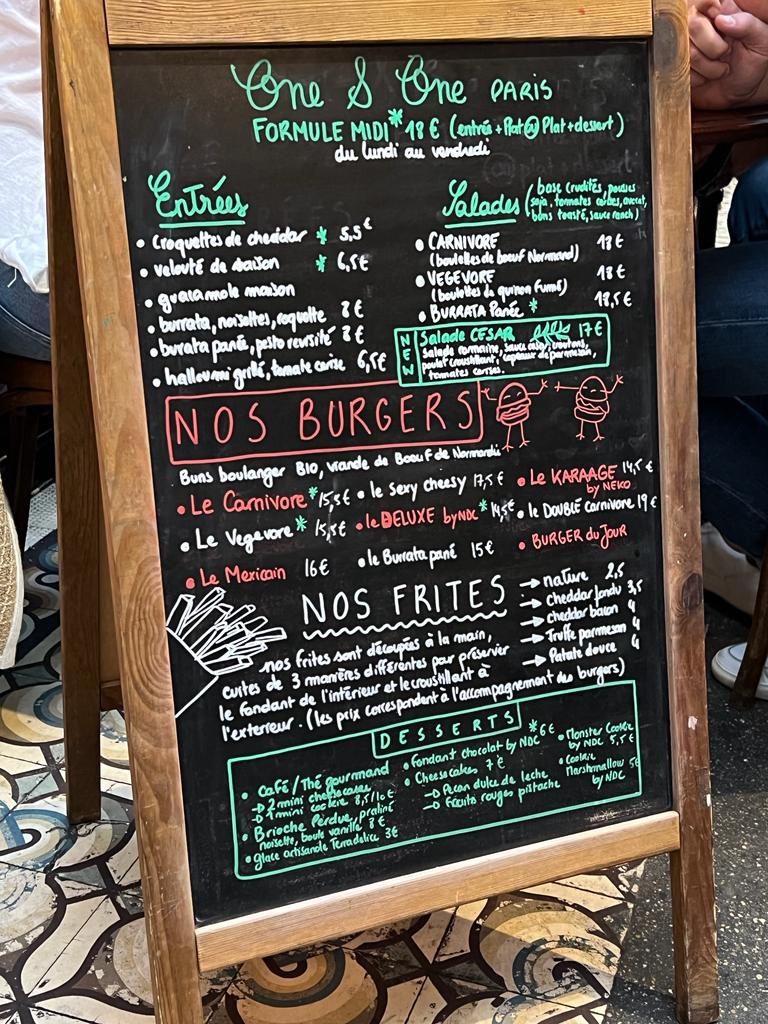 One & One PARIS
FORMULE MIDI* 18 € (entrée + Plat ou Plat + dessert)
du lundi au vendredi
Entrées
• Croquettes de cheddar * 5,5€
• velouté de saison * 6,5€
• guacamole maison
• burrata, noisettes, roquette 8€
• burrata panée, pesto revisité 8€
• halloumi grillé, tomate cerise 6,5€
Salades (base crudités, pousses
soja, tomates cerises, avocat,
buns toasté, sauce ranch)
• CARNIVORE 18€
(boulettes de bœuf Normand)
• VEGEVORE 18€
(boulettes de quinoa fumé)
• BURRATA Panée * 18,5€
NEW
Salade CESAR 17€
Salade romaine, sauce césar, croutons,
poulet croustillant, copeaux de parmesan,
tomates cerises.
NOS BURGERS
Buns boulanger BIO, viande de Boeuf de Normandie
• Le Carnivore * 15,5€
• Le Vegevore * 15,5€
• Le Mexicain 16€
• le sexy cheesy 17,5€
• le DELUXE by NDC * 14,5€
• le Burrata pané 15€
• Le KARAAGE 14,5€
by NEKO
• le DOUBLE Carnivore 19€
• BURGER du JOUR
NOS FRITES
→ nature 2,5
→ cheddar fondu 3,5
→ cheddar bacon 4
→ Truffe parmesan 4
→ Patate douce 4
nos frites sont découpées à la main,
cuites de 3 manières différentes pour préserver
le fondant de l'intérieur et le croustillant à
l'exterieur. (les prix correspondent à l'accompagnement des burgers)
DESSERTS
• Café / Thé gourmand
→ 2 mini cheesecakes
→ 1 mini cookie 8,5/10€
• Brioche Perdue, praliné
noisette, boule vanille 8€
• glace artisanale Terradelice 3€
• Fondant chocolat by NDC * 6€
• Cheesecakes 7€
→ Pecan dulce de leche
→ Fruits rouges pistache
• Monster Cookie
by NDC 5,5€
• Cookie
Marshmallow 5€
by NDC